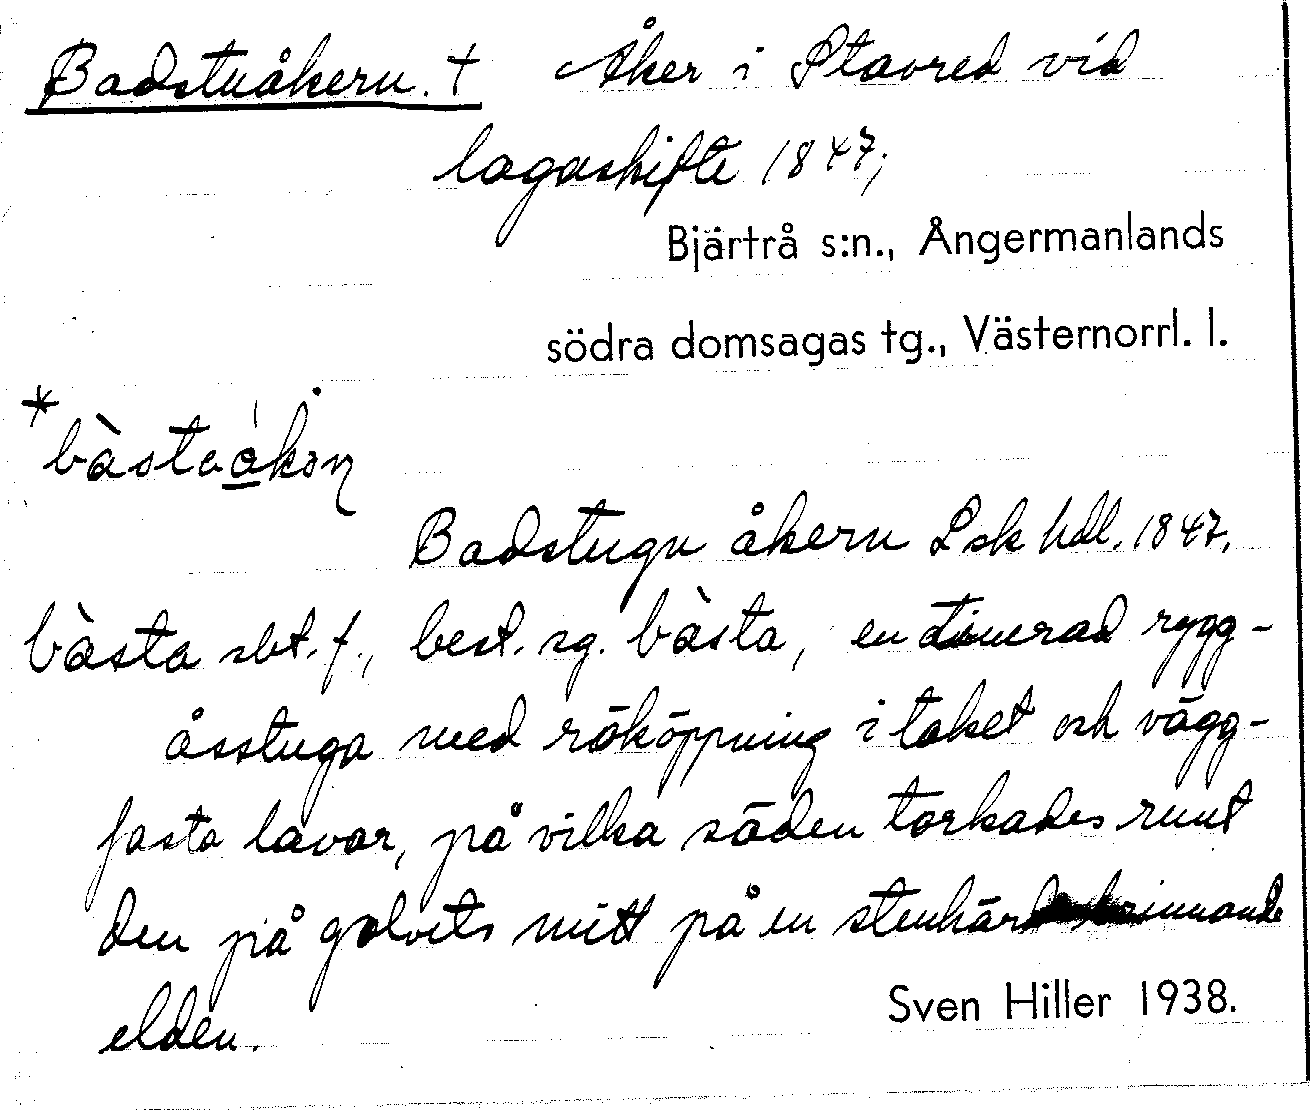 Badstuåkern. † Åker i Stavred vid
lagaskifte 1847,
Bjärtrå s:n., Ångermanlands
södra domsagas tg., Västernorrl. l.
*bàstuåkən
Badstugu åkern Lsk hdl. 1847.
bàsta sbt. f., best. sg. bàsta, en timrad rygg-
åsstuga med rököppning i taket och vägg-
fasta lavar, på vilka säden torkades runt
den på golvets mitt på en stenhärd brinnande
elden.
Sven Hiller 1938.